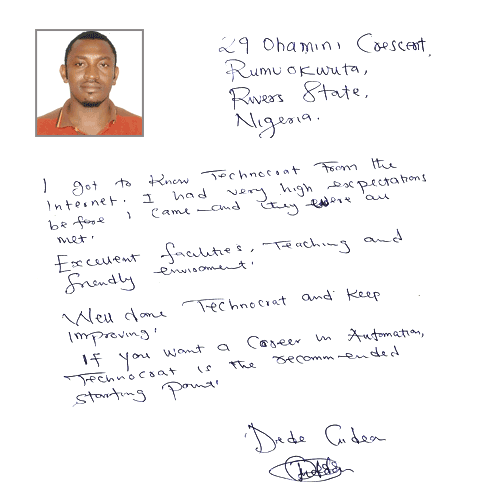 29 Ohamini Crescent,
Rumuokwuta,
Rivers State,
Nigeria.
I got to know Technocrat from the
Internet. I had very high expectations
before i came and they were all
met.
Excellent facilities, Teaching and
friendly environment.
Well done Technocrat and keep
improving.
If you want a Career in Automation,
Technocrat is the recommended
starting point.
Dede